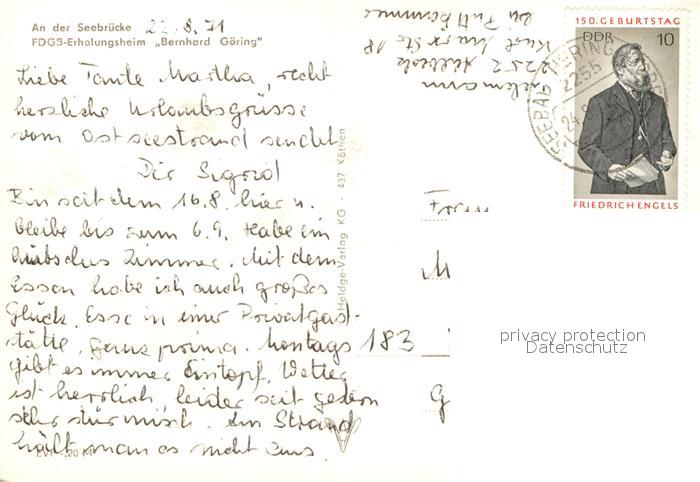 An der Seebrücke
FDGB-Erholungsheim „Bernhard Göring"
22.8.71
Liebe Tante Martha, recht
herzliche Urlaubsgrüsse
vom Ostseestrand sendet
Dir Sigrid
Bin seit dem 16.8. hier u.
bleibe bis zum 6.9. Habe ein
hübsches Zimmer. Mit dem
Essen habe ich auch großes
Glück. Esse in einer Privatgast-
stätte, ganz prima. Montags
gibt es immer Eintopf. Wetter
ist herrlich, leider seit gestern
sehr stürmisch. Am Strand
hält man es nicht aus.
EVP -,20 M
Heldge-Verlag KG - 437 Köthen
bei Puttkammer
Karl Marx Str. 18
2252
150. GEBURTSTAG
DDR 10
FRIEDRICH ENGELS
SEEBAD HERING
2255
24.8
183
M
G
privacy protection
Datenschutz